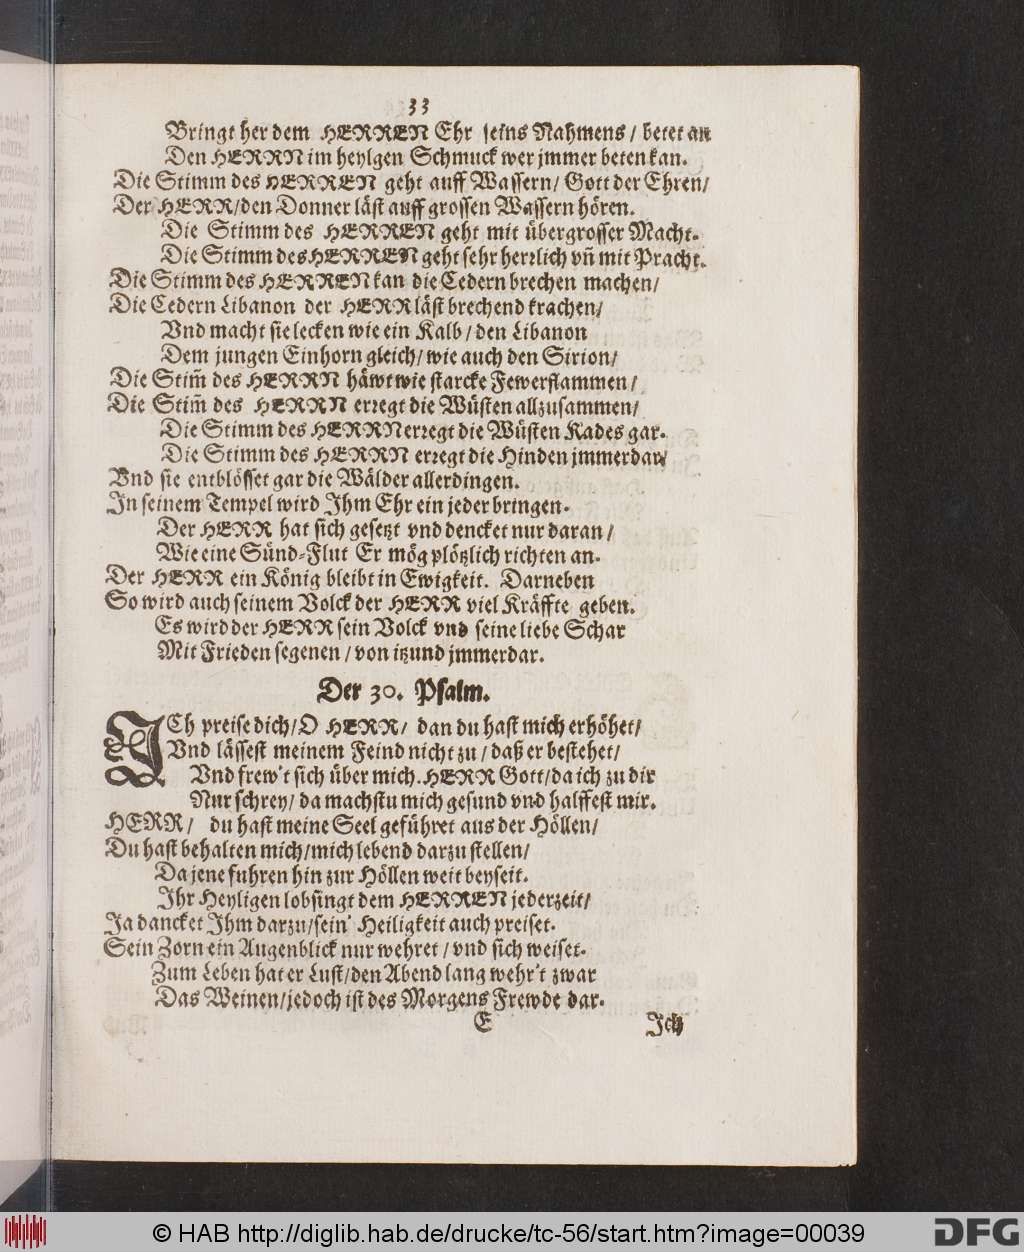 33
Bringt her dem HERREN Ehr seins Nahmens / betet an
Den HERRN im heylgen Schmuck wer jmmer beten kan.
Die Stimm des HERREN geht auff Wassern / Gott der Ehren /
Der HERR / den Donner läst auff grossen Wassern hören.
Die Stimm des HERREN geht mit übergrosser Macht.
Die Stimm des HERREN geht sehr herrlich vñ mit Pracht.
Die Stimm des HERREN kan die Cedern brechen machen /
Die Cedern Libanon der HERR läst brechend krachen /
Vnd macht sie lecken wie ein Kalb / den Libanon
Dem jungen Einhorn gleich / wie auch den Sirion /
Die Stim̃ des HERRN häwt wie starcke Fewerflammen /
Die Stim̃ des HERRN erregt die Wüsten allzusammen /
Die Stimm des HERRN erregt die Wüsten Kades gar.
Die Stimm des HERRN erregt die Hinden jmmerdar /
Vnd sie entblösset gar die Wälder allerdingen.
In seinem Tempel wird Ihm Ehr ein jeder bringen.
Der HERR hat sich gesetzt vnd dencket nur daran /
Wie eine Sünd-Flut Er mög plötzlich richten an.
Der HERR ein König bleibt in Ewigkeit. Darneben
So wird auch seinem Volck der HERR viel Kräffte geben.
Es wird der HERR sein Volck vnd seine liebe Schar
Mit Frieden segenen / von itzund jmmerdar.
Der 30. Psalm.
ICh preise dich / O HERR / dan du hast mich erhöhet /
Vnd lässest meinem Feind nicht zu / daß er bestehet /
Vnd frew't sich über mich. HERR Gott / da ich zu dir
Nur schrey / da machstu mich gesund vnd halffest mir.
HERR / du hast meine Seel geführet aus der Höllen /
Du hast behalten mich / mich lebend darzustellen /
Da jene fuhren hin zur Höllen weit beyseit.
Ihr Heyligen lobsingt dem HERREN jederzeit /
Ja dancket Ihm darzu / sein' Heiligkeit auch preiset.
Sein Zorn ein Augenblick nur wehret / vnd sich weiset.
Zum Leben hat er Lust / den Abend lang wehr't zwar
Das Weinen / jedoch ist des Morgens Frewde dar.
E Ich
© HAB http://diglib.hab.de/drucke/tc-56/start.htm?image=00039
DFG